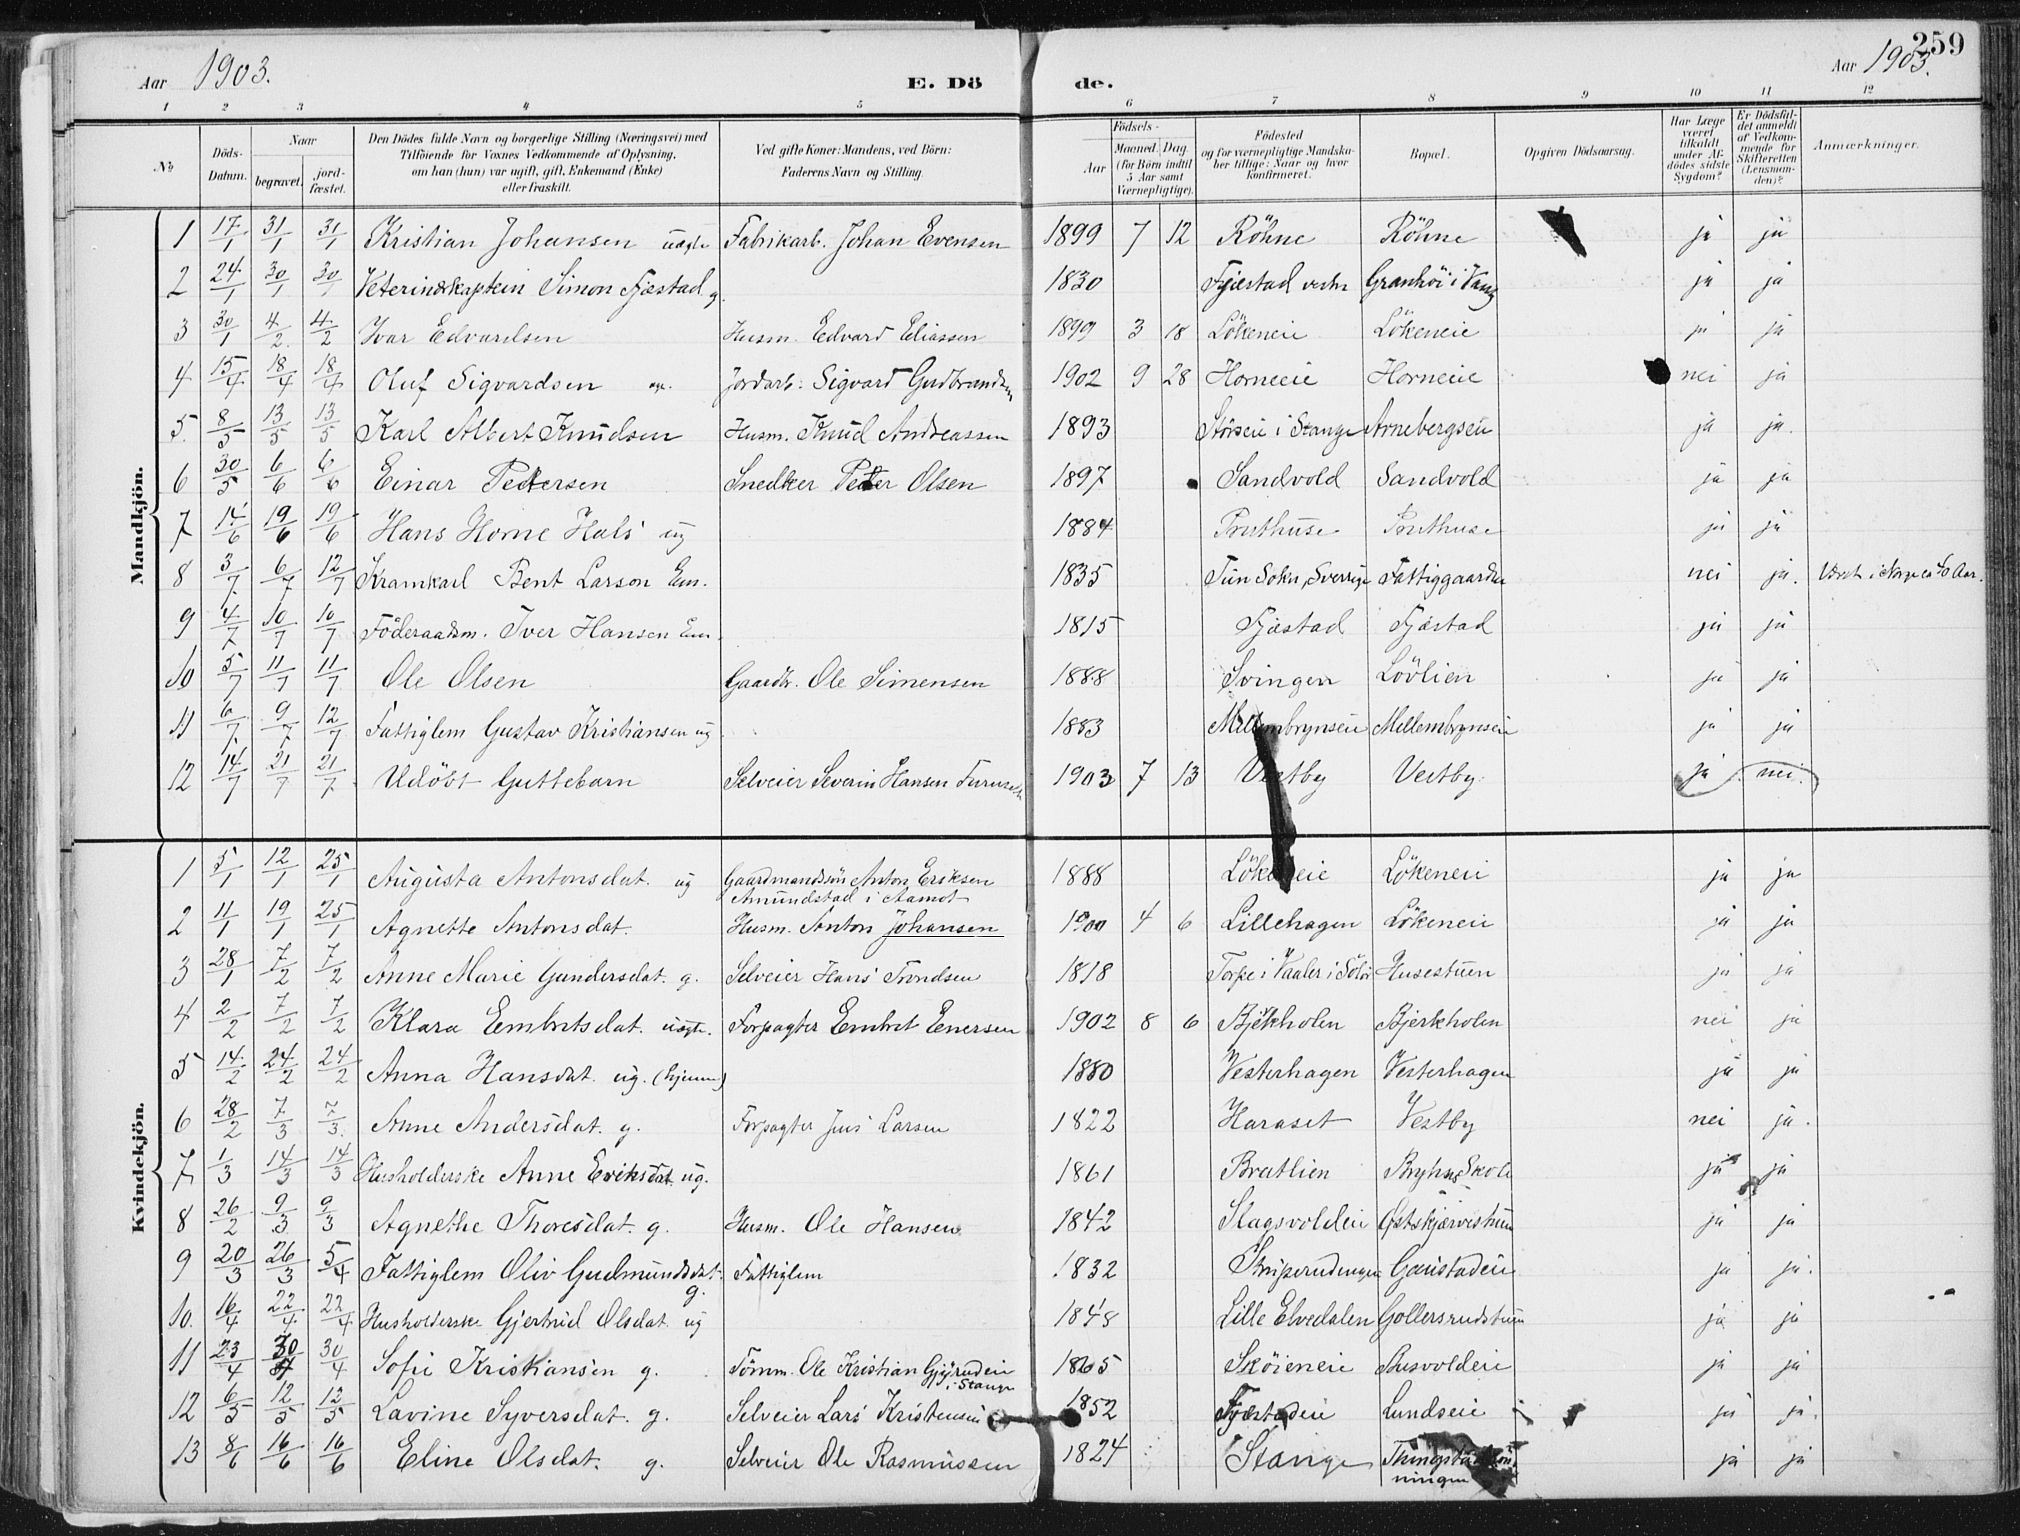 259
Aar 1903. E. Dö de. Aar 1903.
1 2 3 4 5 6 7 8 9 10 11 12
No Döds-Datum. Naar begravet. jord-fæstet. Den Dödes fulde Navn og borgerlige Stilling (Næringsvei) med Tilföiende for Voxnes Vedkommende af Oplysning, om han (hun) var ugift, gift, Enkemand (Enke) eller fraskilt. Ved gifte Koner: Mandens, ved Börn: Faderens Navn og Stilling. Födsels- Aar Maaned. Dag. (for Börn indtil 5 Aar samt Værnepligtige). Födested og for værnepligtige Mandskaber tillige: Naar og hvor konfirmeret. Bopæl. Opgiven Dödsaarsag. Har Læge været tilkaldt under Afdödes sidste Sygdom? Er Dödsfaldet anmeldt af Vedkommende for Skifteretten (Lensmanden)? Anmærkninger.
Mandkjön.
1 17/1 31/1 31/1 Kristian Johansen uægte Fabrikarb. Johan Evensen 1899 7 12 Röhne Röhne ja ja
2 24/1 30/1 30/1 Veterinærkaptein Simon Fjæstad g. 1830 Fjæstad Granhöi i Vang ja ja
3 30/1 4/2 4/2 Ivar Edvardsen Husm. Edvard Eliassen 1899 3 18 Lökeneie Lökeneie ja ja
4 15/4 18/4 18/4 Oluf Sigvardsen Jordarb: Sigvard Gudbrandsen 1902 9 28 Horneeie Horneeie nei ja
5. 8/5 13/5 13/5 Karl Albert Knudsen Husm. Knud Andreassen 1893 i Stange Arnebergseie ja ja.
6 30/5 6/6 6/6 Einar Pettersen Snedker Petter Olsen 1897 Sandvold Sandvold ja ja
7 14/6 19/6 19/6 Hans Horne Hals ug 1884 Pruthuse Pruthuse ja ja
8 3/7 6/7 12/7 Kramkarl Bent Larson Em. 1835 Tun Sokn, Sverrige Fattiggaarden nei ja. Været i Norge ca 40 Aar.
9 4/7 10/7 10/7 Föderaadsm. Iver Hansen Em. 1815 Fjæstad Fjæstad ja ja
10 5/7 11/7 11/7 Ole Olsen Gaardbr. Ole Simensen 1888 Svingen Lövlien ja ja
11 6/7 9/7 12/7 Fattiglem Gustav Kristiansen ug 1883 Mellembrynseie Mellembrynseie ja ja
12 14/7 21/7 21/7 Udöbt Guttebarn Selveier Severin Hansen 1903 7 13 Vestby Vestby. ja nei.
Kvindekjön.
1 5/1 12/1 25/1 Augusta Antonsdat. ug Gaardmandssön Anton Eriksen
Amundstad i Aamot 1888 Lökeneie Lökeneie ja ja
2 11/1 19/1 25/1 Agnette Antonsdat. Husm. Anton Johansen 1900 4 6 Lillehagen Lökeneie ja ja
3 28/1 7/2 7/2 Anne Marie Gundersdat. g. Selveier Hans Trondsen 1818 Torpe i Vaaler i Solör Husestuen ja ja
4 2/2 7/2 7/2 Klara Embretsdat. uægte. Forpagter Embret Enersen 1902 8 6 Bjerkholen Bjerkholen nei ja
5 14/2 24/2 24/2 Anna Hansdat. ug. (hjemme) 1880 Vesterhagen Vesterhagen ja ja
6 28/2 7/3 7/3. Anne Andersdat. g. Forpagter Jens Larsen 1822 Haraset Vestby nei ja.
7 1/3 14/3 14/3 Husholderske Anne Eriksdat. ug. 1861 Bratlien Bryhns Skole ja ja
8 26/2 9/3 9/3 Agnethe Thoresdat. g. Husm. Ole Hansen. 1842 Slagsvoldeie Østskjærvestuen ja ja
9 20/3 26/3 5/4 Fattiglem Oliv Gudmundsdat. g. Fattiglem 1832 Gaustadeie ja ja.
10. 16/4 22/4 22/4 Husholderske Gjertrud Olsdat. ug 1848 Lille Elvedalen Gollersrudstuen ja ja
11 23/4 30/4 30/4 Sofie Kristiansen g. Tömm. Ole Kristian
i Stange 1865 Sköieneie Busvoldeie ja ja
12 6/5 12/5 12/5 Lavine Syversdat. g. Selveier Lars Kristensen 1852 Fjæstadeie Lundseie ja ja.
13 8/6 16/6 16/6 Eline Olsdat. g. Selveier Ole Rasmussen 1824 Stange ja ja